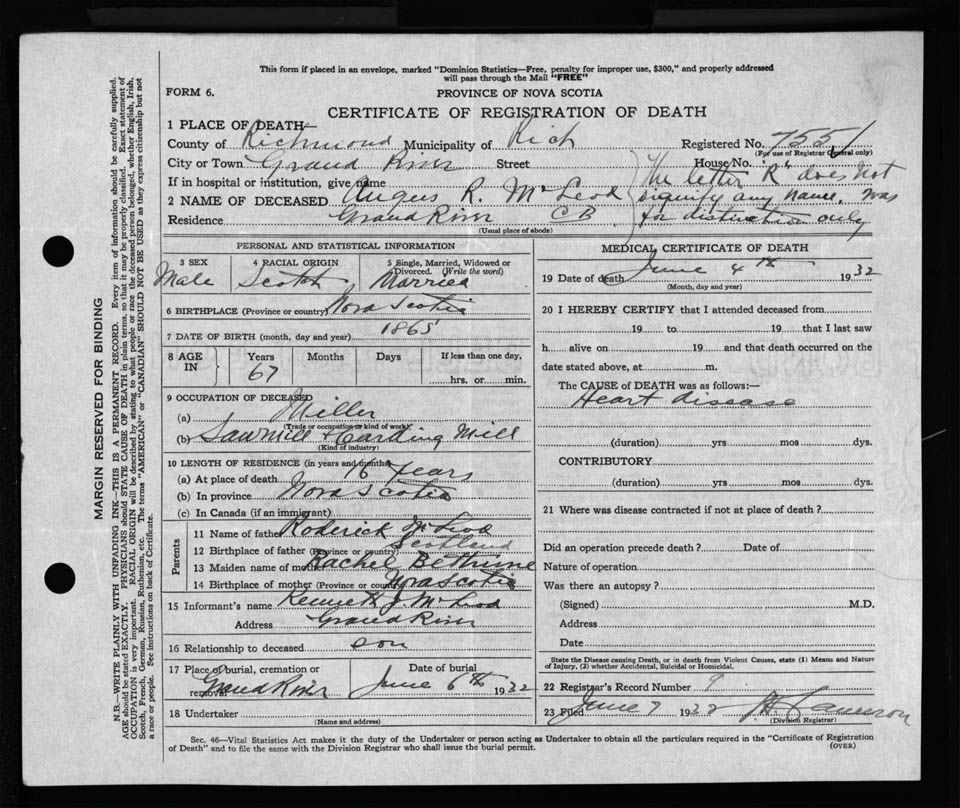 This form if placed in an envelope, marked "Dominion Statistics—Free, penalty for improper use, $300," and properly addressed
will pass through the Mail "FREE"
FORM 6.
PROVINCE OF NOVA SCOTIA
CERTIFICATE OF REGISTRATION OF DEATH
1 PLACE OF DEATH
County of Richmond Municipality of Rich Registered No. 7551
(For use of Registrar General only)
City or Town Grand River Street House No.
If in hospital or institution, give name
2 NAME OF DECEASED Angus R. McLeod
Residence Grand River CB
(Usual place of abode)
The letter "R" does not
signify any name, was
for distinction only
PERSONAL AND STATISTICAL INFORMATION
3 SEX 4 RACIAL ORIGIN 5 Single, Married, Widowed or
Divorced. (Write the word)
Male Scotch Married
6 BIRTHPLACE (Province or country) Nova Scotia
7 DATE OF BIRTH (month, day and year) 1865
8 AGE IN Years Months Days If less than one day,
67 hrs. or min.
9 OCCUPATION OF DECEASED
(a) Miller
(Trade or occupation or kind of work)
(b) Sawmill & Carding Mill
(Kind of industry)
10 LENGTH OF RESIDENCE (in years and months)
(a) At place of death 16 years
(b) In province Nova Scotia
(c) In Canada (if an immigrant)
Parents
11 Name of father Roderick McLeod
12 Birthplace of father (Province or country) Scotland
13 Maiden name of mother Rachel Bethune
14 Birthplace of mother (Province or country) Nova Scotia
15 Informant's name Kenneth J. McLeod
Address Grand River
16 Relationship to deceased son
17 Place of burial, cremation or Date of burial
removal Grand River June 6th 1932
18 Undertaker
(Name and address)
MEDICAL CERTIFICATE OF DEATH
19 Date of death June 4th 1932
(Month, day and year)
20 I HEREBY CERTIFY that I attended deceased from
19 to 19 that I last saw
h alive on 19 and that death occurred on the
date stated above, at m.
The CAUSE of DEATH was as follows:—
Heart disease
(duration) yrs mos dys.
CONTRIBUTORY
(duration) yrs mos dys.
21 Where was disease contracted if not at place of death?
Did an operation precede death? Date of
Nature of operation
Was there an autopsy?
(Signed) M.D.
Address
Date
State the Disease causing Death, or in death from Violent Causes, state (1) Means and Nature
of Injury, (2) whether Accidental, Suicidal or Homicidal.
22 Registrar's Record Number 9
23 Filed June 7 1932 Cameron
(Division Registrar)
Sec. 46—Vital Statistics Act makes it the duty of the Undertaker or person acting as Undertaker to obtain all the particulars required in the "Certificate of Registration
of Death" and to file the same with the Division Registrar who shall issue the burial permit. (OVER)
MARGIN RESERVED FOR BINDING
N.B.—WRITE PLAINLY WITH UNFADING INK—THIS IS A PERMANENT RECORD. Every item of information should be carefully supplied.
AGE should be stated EXACTLY. PHYSICIANS should STATE CAUSE OF DEATH in plain terms, so that it may be properly classified. Exact statement of
OCCUPATION is very important. RACIAL ORIGIN will be described by stating to what people or race the deceased person belonged, whether English, Irish,
Scotch, French, German, Russian, Ruthenian, etc. The terms "AMERICAN" or "CANADIAN" SHOULD NOT BE USED as they express citizenship but not
a race or people. See instructions on back of Certificate.